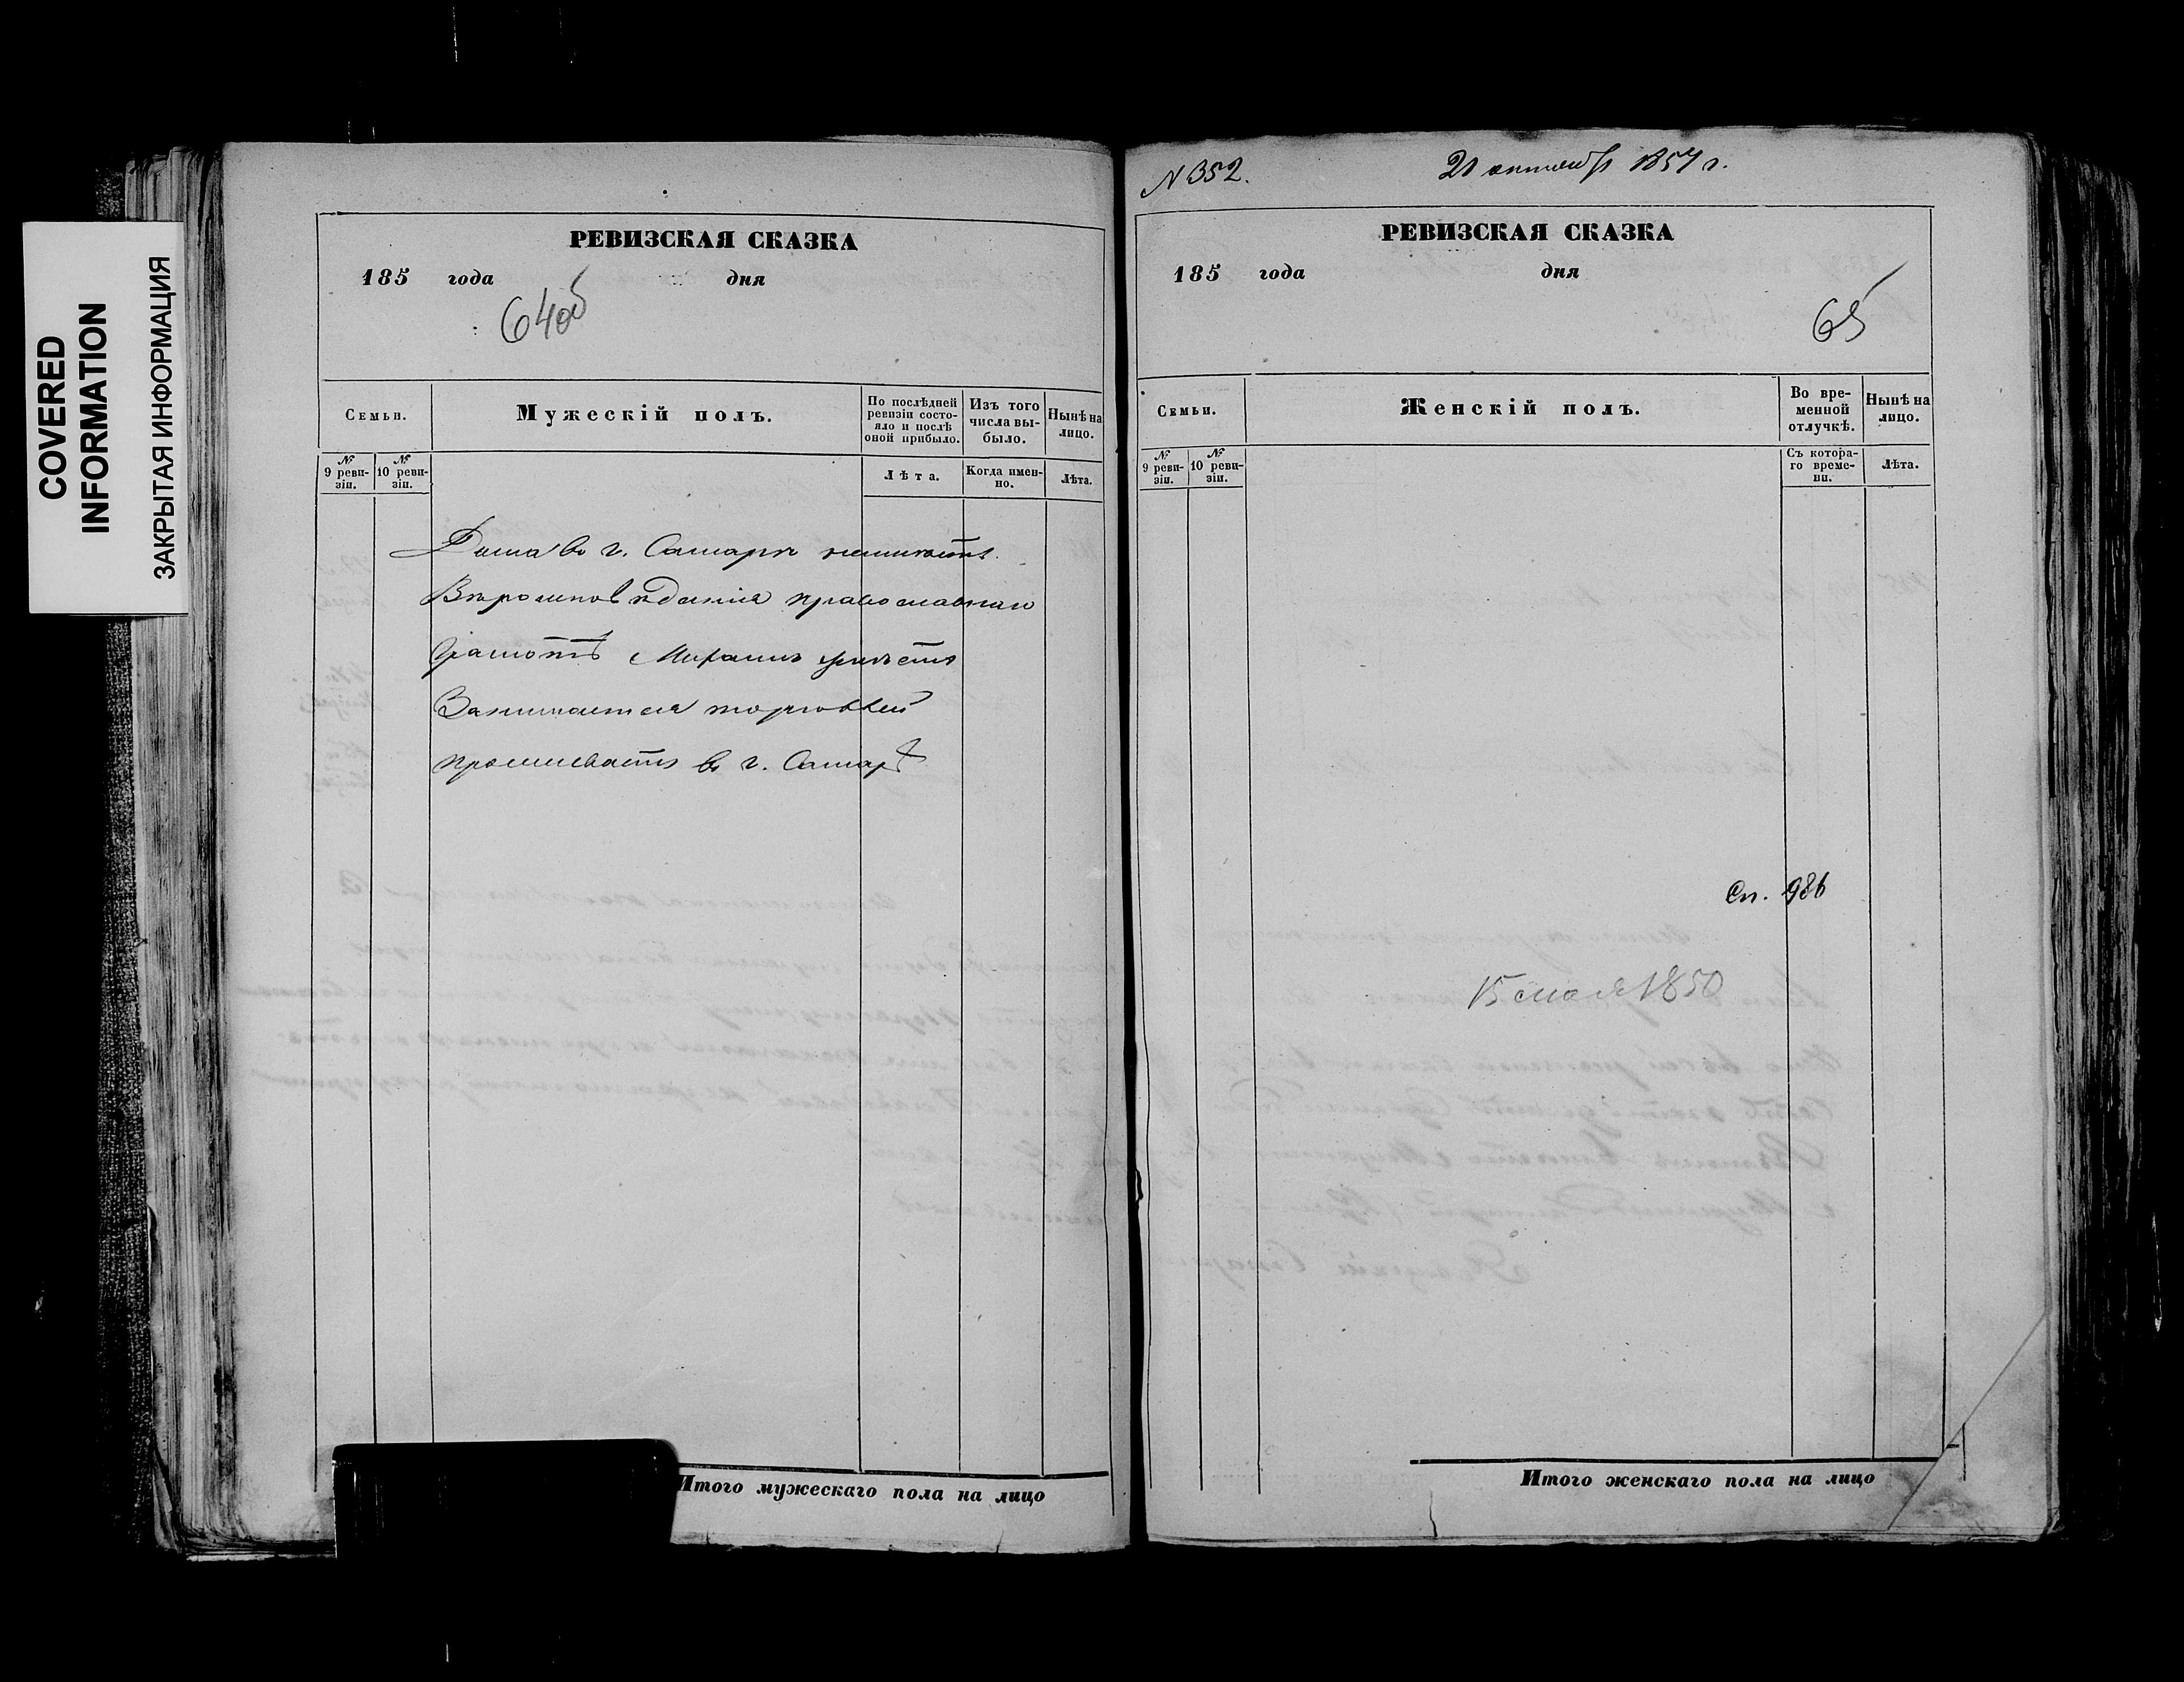 COVERED
INFORMATION
ЗАКРЫТАЯ ИНФОРМАЦИЯ
РЕВИЗСКАЯ СКАЗКА
185 года дня
64об
Семьи.
Мужескій полъ.
По послѣдней ревизіи состояло и послѣ оной прибыло.
Изъ того числа выбыло.
Нынѣ на лицо.
№ 9 ревизіи.
№ 10 ревизіи.
Лѣта.
Когда именно.
Лѣта.
Дома в г. Самарѣ неимѣетъ.
Вѣроисповѣданія православнаго
Грамотѣ умѣетъ
Занимается торговлей
проживаетъ в г. Самарѣ
Итого мужескаго пола на лицо
N 352.
21 октября 1857 г.
РЕВИЗСКАЯ СКАЗКА
185 года дня
65
Семьи.
Женскій полъ.
Во временной отлучкѣ.
Нынѣ на лицо.
№ 9 ревизіи.
№ 10 ревизіи.
Съ котораго времени.
Лѣта.
Сп. 986
15 мая 1850
Итого женскаго пола на лицо